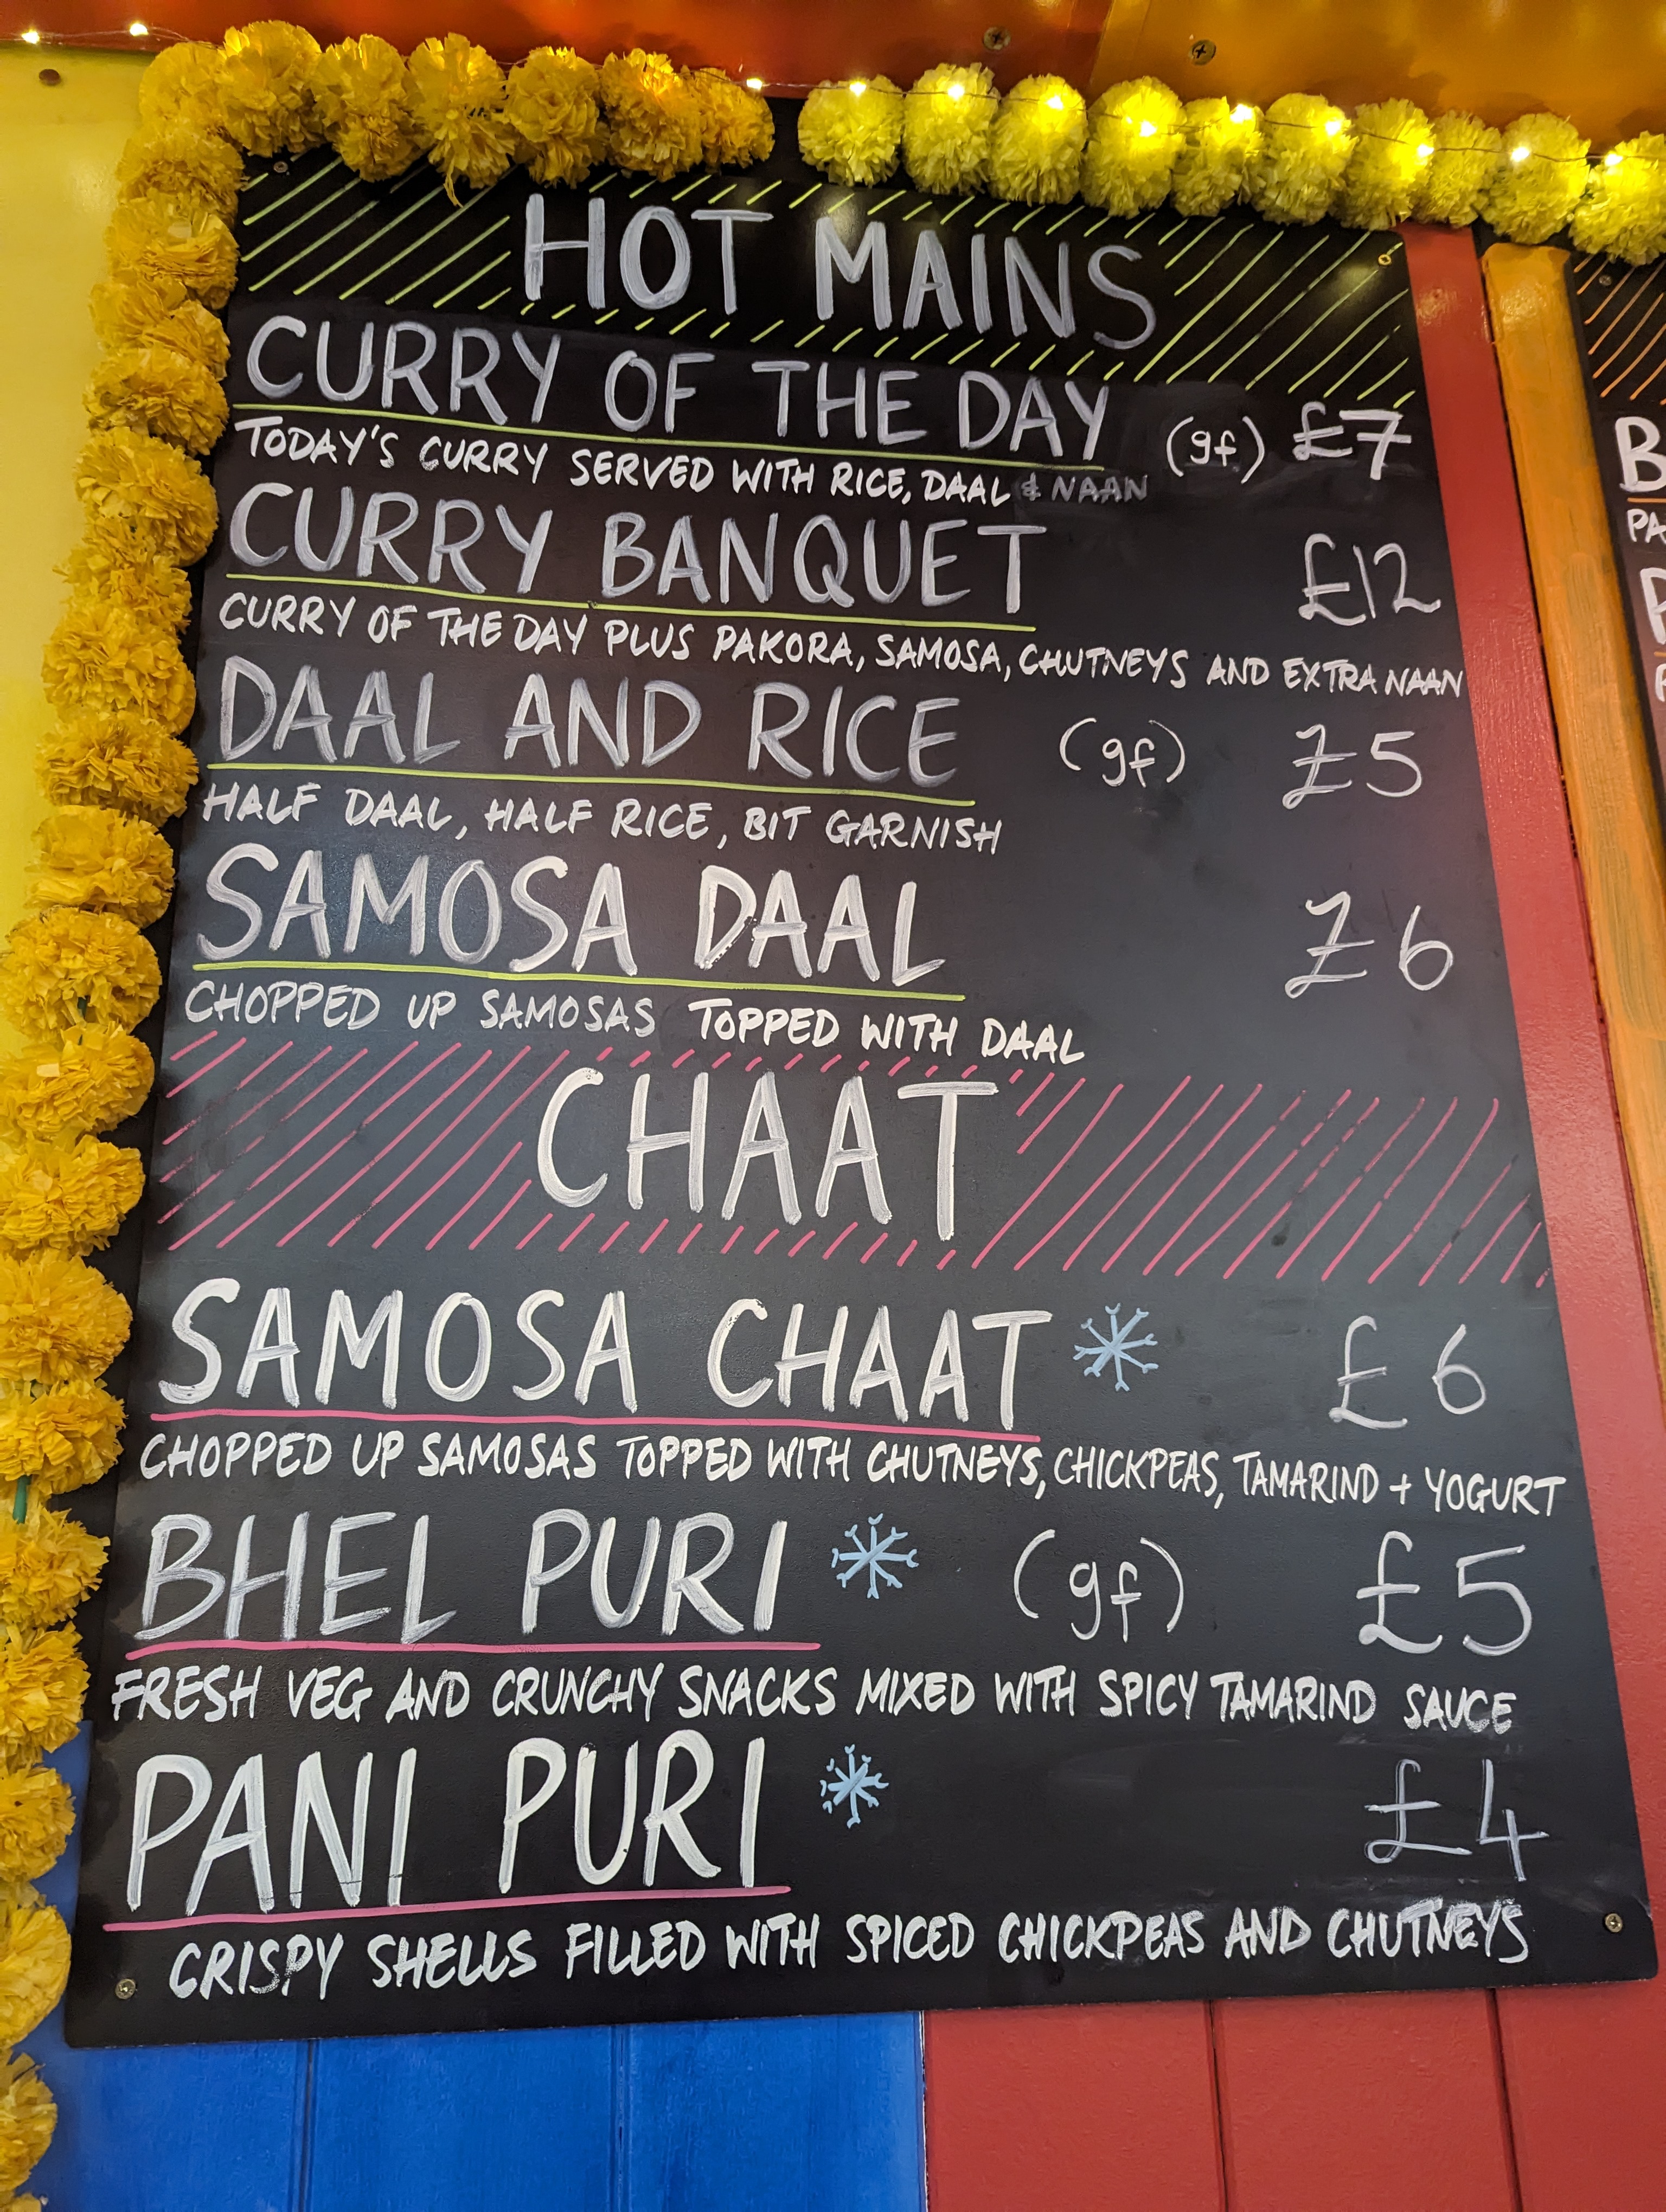 HOT MAINS
CURRY OF THE DAY (gf) £7
TODAY'S CURRY SERVED WITH RICE, DAAL & NAAN
CURRY BANQUET £12
CURRY OF THE DAY PLUS PAKORA, SAMOSA, CHUTNEYS AND EXTRA NAAN
DAAL AND RICE (gf) £5
HALF DAAL, HALF RICE, BIT GARNISH
SAMOSA DAAL £6
CHOPPED UP SAMOSAS TOPPED WITH DAAL
CHAAT
SAMOSA CHAAT £6
CHOPPED UP SAMOSAS TOPPED WITH CHUTNEYS, CHICKPEAS, TAMARIND + YOGURT
BHEL PURI (gf) £5
FRESH VEG AND CRUNCHY SNACKS MIXED WITH SPICY TAMARIND SAUCE
PANI PURI £4
CRISPY SHELLS FILLED WITH SPICED CHICKPEAS AND CHUTNEYS